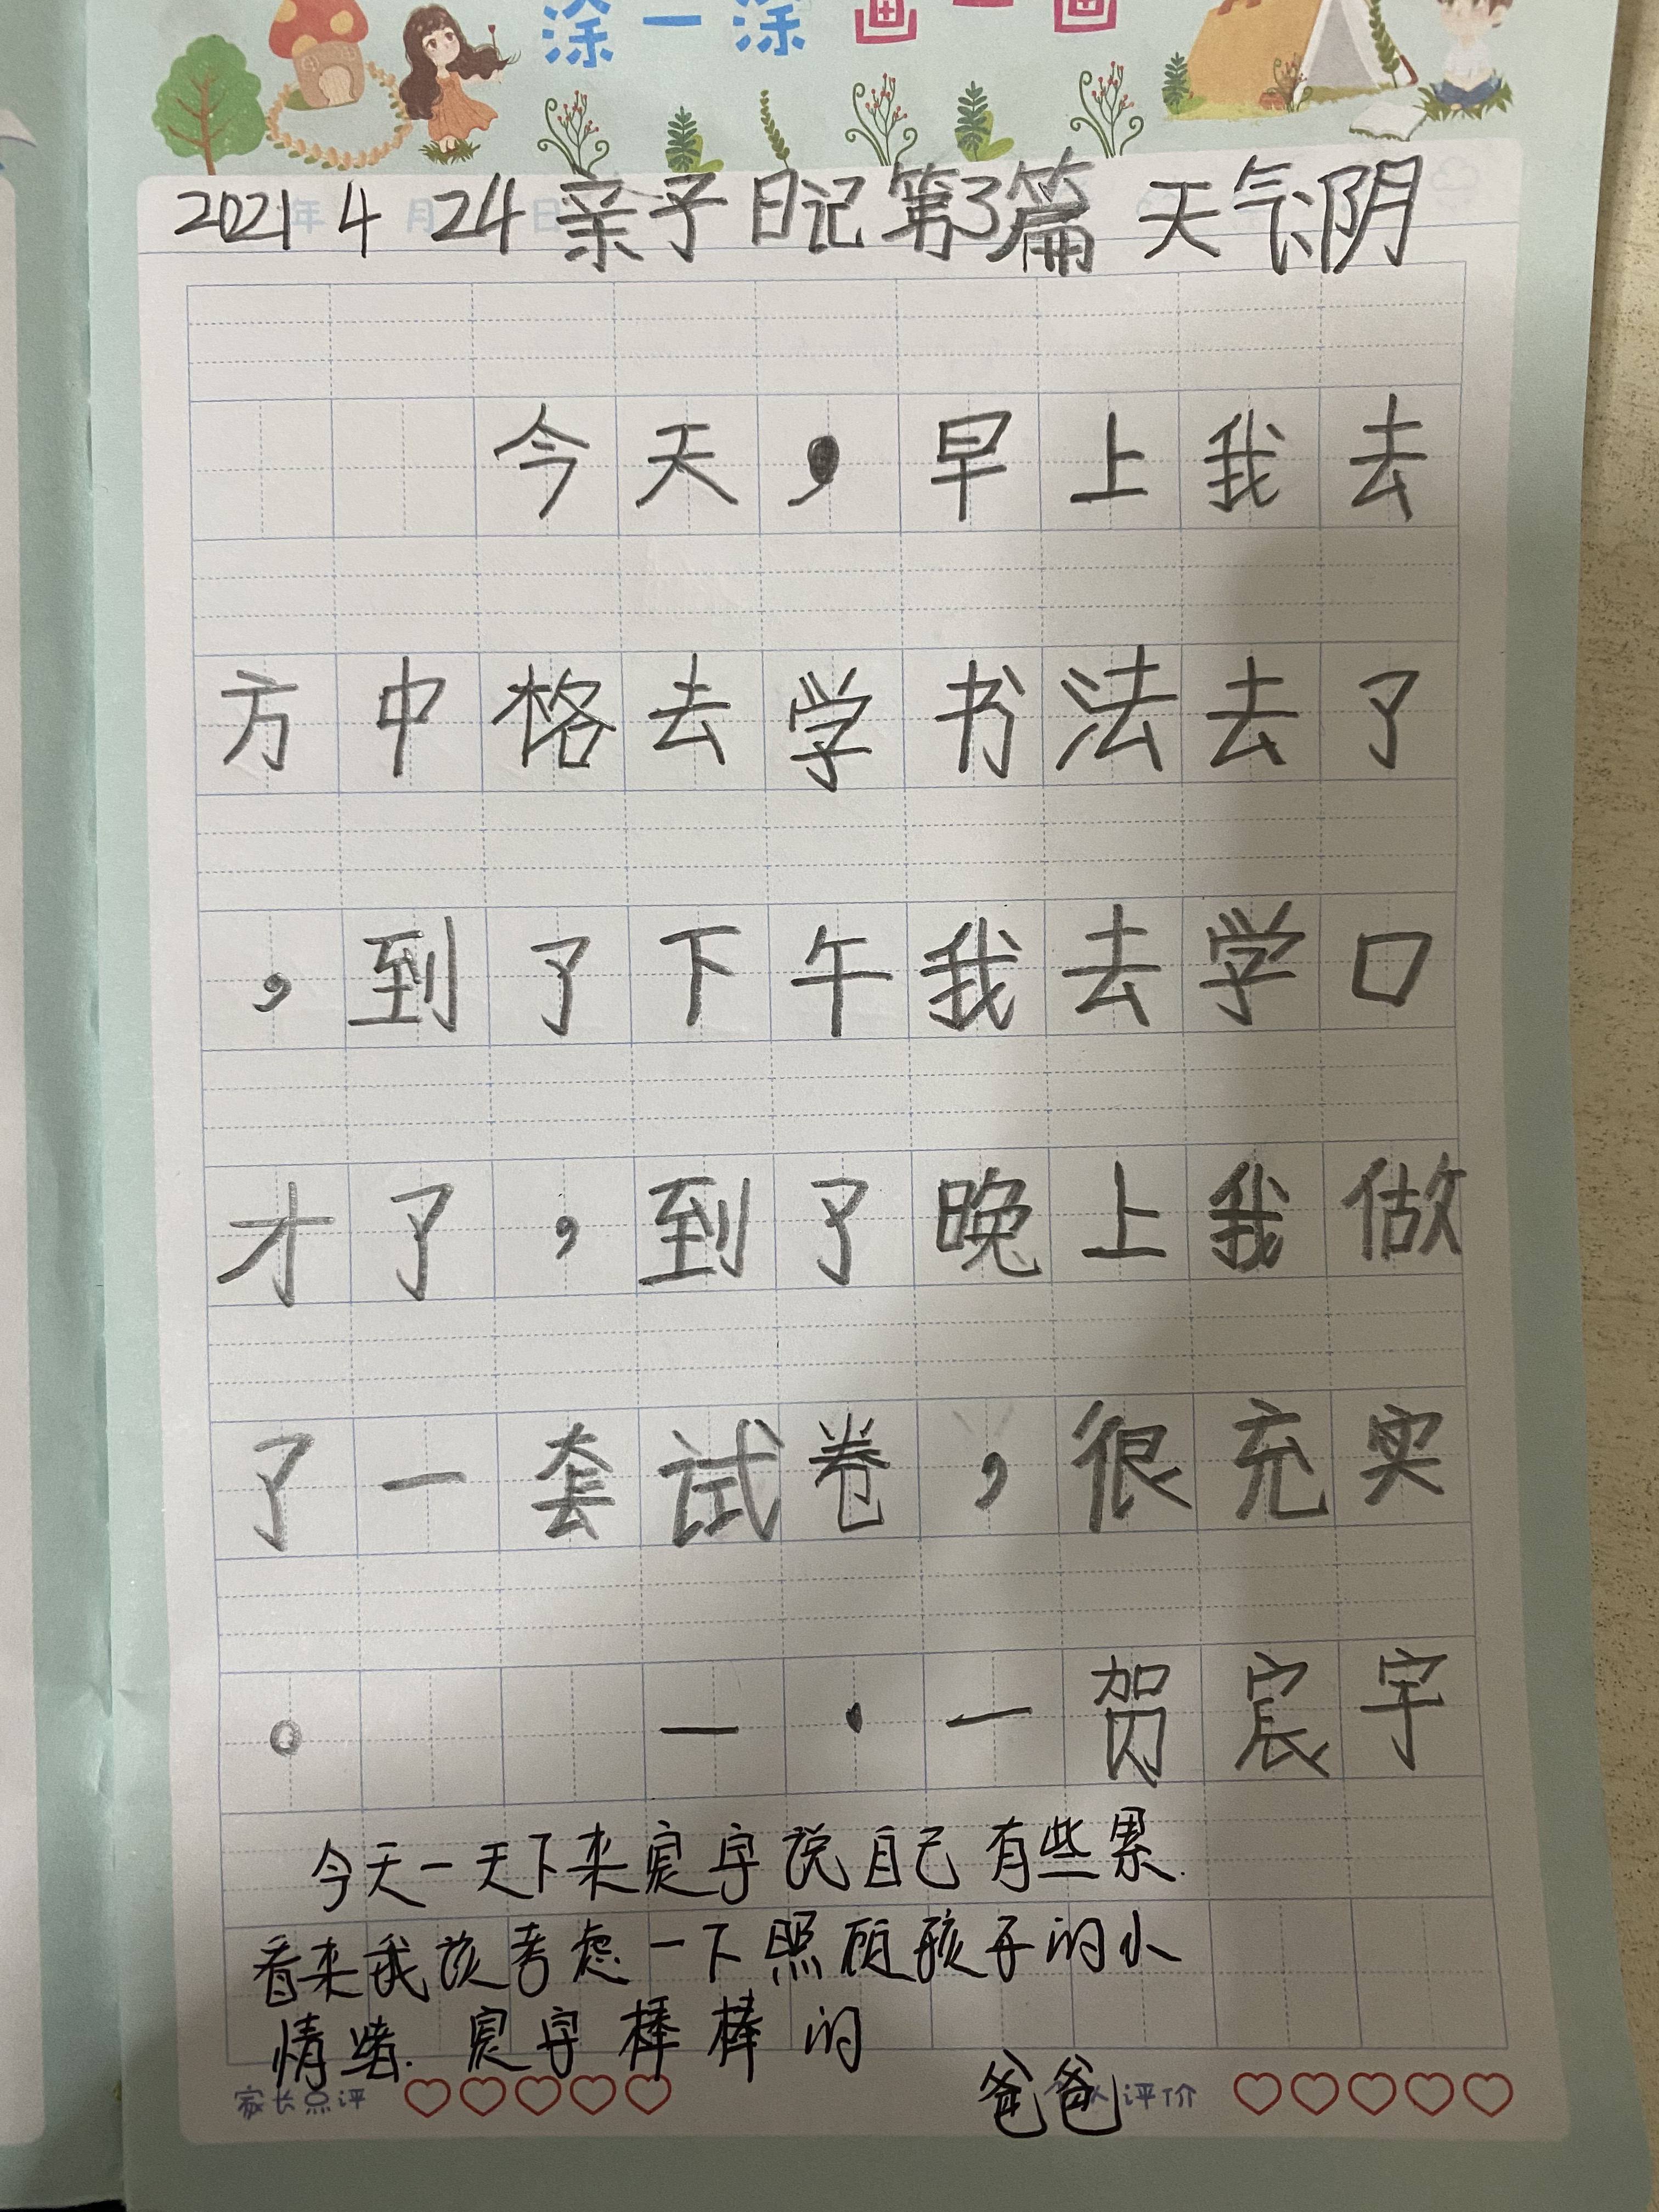 涂一涂 画一画
2021年4月24日亲子日记第3篇 天气:阴
今天，早上我去
方中格去学书法去了
，到了下午我去学口
才了，到了晚上我做
了一套试卷，很充实
。 一·一贺宸宇
今天一天下来宸宇说自己有些累.
看来我该考虑一下照顾孩子的小
情绪. 宸宇棒棒的
爸爸
家长点评 评价